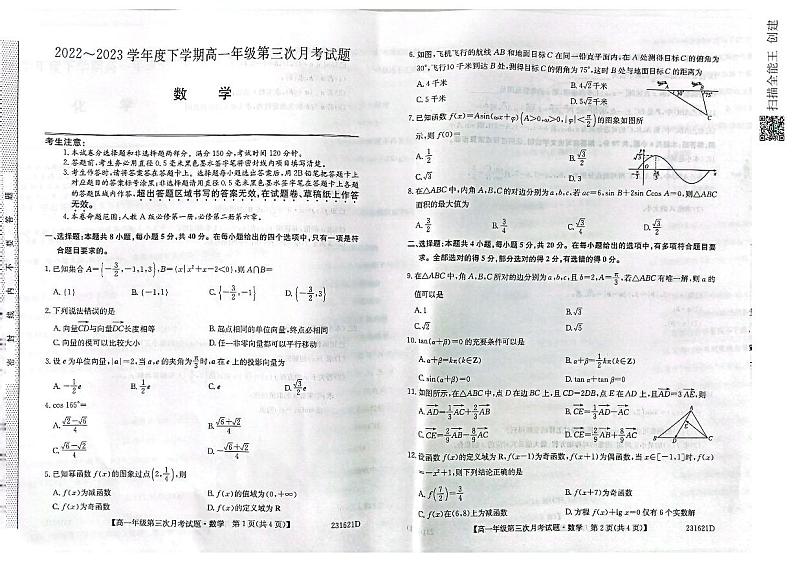 2022～2023学年度下学期高一年级第三次月考试题
数 学
考生注意:
1.本试卷分选择题和非选择题两部分。满分150分,考试时间120分钟。
2.答题前,考生务必用直径0.5毫米黑色墨水签字笔将密封线内项目填写清楚。
3.考生作答时,请将答案答在答题卡上。选择题每小题选出答案后,用2B铅笔把答题卡上
对应题目的答案标号涂黑;非选择题请用直径0.5毫米黑色墨水签字笔在答题卡上各题
的答题区域内作答,超出答题区域书写的答案无效,在试题卷、草稿纸上作答
无效。
4.本卷命题范围:人教A版必修第一册,必修第二册第六章。
一、选择题:本题共8小题,每小题5分,共40分。在每小题给出的四个选项中,只有一项是符
合题目要求的。
1.已知集合A={-3/2,-1,1,3},B={x|x²+x-2<0},则A∩B=
A.{1} B.{-1,1} C.{-3/2,-1} D.{-3/2,3}
2.下列说法错误的是
A.向量CD与向量DC长度相等 B.起点相同的单位向量,终点必相同
C.向量的模可以比较大小 D.任一非零向量都可以平行移动
3.设e为单位向量,|a|=2,当a,e的夹角为π/3时,a在e上的投影向量为
A.-1/2e B.1/2e C.e D.√3/2e
4.cos 165°=
A.(√2-√6)/4 B.(√6+√2)/4
C.(√6-√2)/4 D.-(√6+√2)/4
5.已知幂函数f(x)的图象过点(2,1/4),则
A.f(x)为减函数 B.f(x)的值域为(0,+∞)
C.f(x)为奇函数 D.f(x)的定义域为R
【高一年级第三次月考试题·数学 第1页(共4页)】 231621D
6.如图,飞机飞行的航线AB和地面目标C在同一铅直平面内,在A处测得目标C的俯角为
30°,飞行10千米到达B处,测得目标C的俯角为75°,这时B处与地面目标C的距离为
A.4千米 B.4√2千米
C.5千米 D.5√2千米
7.已知函数f(x)=Asin(ωx+φ)(A>0,ω>0,|φ|<π/2)的图象如图所
示,则f(0)=
A.1/2 B.√3/2
C.√3 D.3/2
8.在△ABC中,内角A,B,C的对边分别为a,b,c.若ac=6,sin B+2sin Ccos A=0,则△ABC
面积的最大值为
A.3/2 B.3/4 C.√3/2 D.√3/4
二、选择题:本题共4小题,每小题5分,共20分。在每小题给出的选项中,有多项符合题目要
求。全部选对的得5分,部分选对的得2分,有选错的得0分。
9.在△ABC中,角A,B,C所对的边分别为a,b,c,且b=2,A=π/3,若△ABC有唯一解,则a的
值可以是
A.1 B.√3
C.√2 D.√5
10.tan(α+β)=0的充要条件可以是
A.α+β=kπ(k∈Z) B.α+β=1/2kπ(k∈Z)
C.sin(α+β)=0 D.tan α+tan β=0
11.如图所示,在△ABC中,点D在边BC上,且CD=2DB,点E在AD上,且AD=3AE,则
A.AD=1/3AC+2/3AB B.CE=1/3AD-AC
C.CE=2/9AB-8/9AC D.CE=2/9AC+8/9AB
12.设函数f(x)的定义域为R,f(x-1)为奇函数,f(x+1)为偶函数,当x∈[-1,1]时,f(x)
=-x²+1,则下列结论正确的是
A.f(7/2)=3/4 B.f(x+7)为奇函数
C.f(x)在(6,8)上为减函数 D.方程f(x)+lg x=0仅有6个实数解
【高一年级第三次月考试题·数学 第2页(共4页)】 231621D
扫描全能王 创建